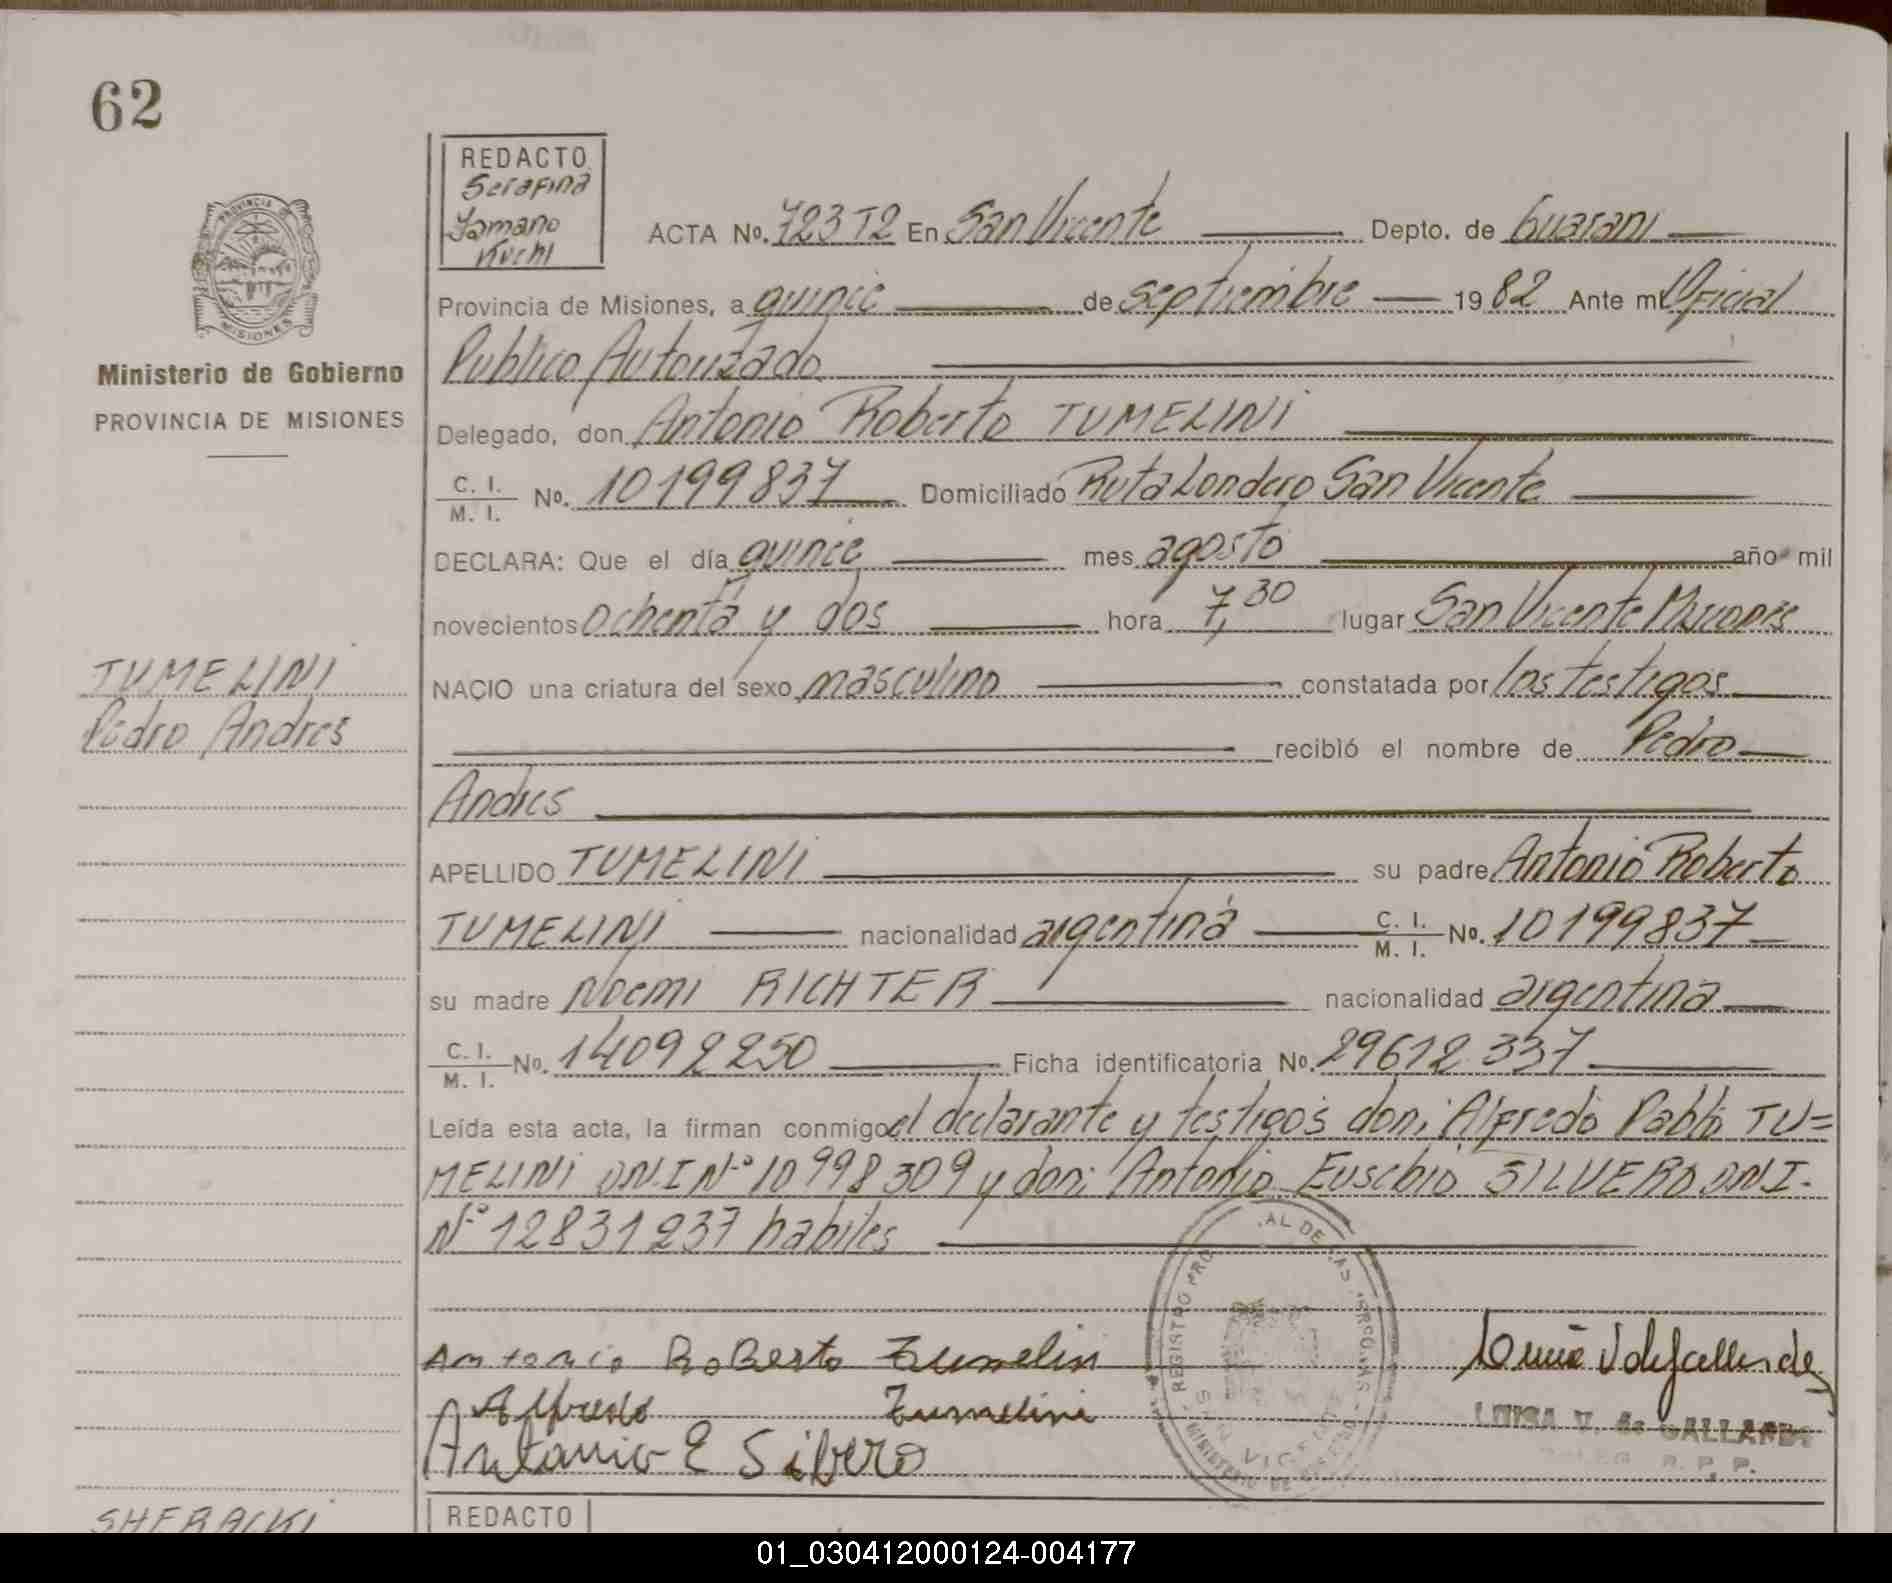 62
REDACTO
Serafina
Jomano
Kuchi
ACTA No. 723 T2 En San Vicente Depto. de Guarani
Provincia de Misiones, a quince de septiembre 1982 Ante mi Oficial
Publico Autorizado
PROVINCIA DE
MISIONES
Ministerio de Gobierno
PROVINCIA DE MISIONES
Delegado, don Antonio Roberto TUMELINI
C. I.
M. I. No. 10199837 Domiciliado Ruta Londero San Vicente
DECLARA: Que el día quince mes agosto año mil
novecientos ochenta y dos hora 7,30 lugar San Vicente Misiones
TUMELINI
Pedro Andres
NACIO una criatura del sexo masculino constatada por los testigos
recibió el nombre de Pedro
Andres
APELLIDO TUMELINI su padre Antonio Roberto
TUMELINI nacionalidad argentina C. I. M. I. No. 10199837
su madre Noemi RICHTER nacionalidad argentina
C. I.
M. I. No. 14092250 Ficha identificatoria No. 29612337
Leída esta acta, la firman conmigo el declarante y testigos don: Alfredo Pablo TU=
MELINI DN.I Nº 10998309 y don: Antonio Eusebio SILVERO D.N.I.
Nº 12831237 habiles
Antonio RoBerto Tumelin
Alfredo Tumelini
Antonio E Silvero
LUISA V. de GALLARDO
R. P. P.
REGISTRO PRO
AL DE LAS PERSONAS
MINISTERIO DE
SAN VICENTE
SHERACKI
REDACTO
01_030412000124-004177